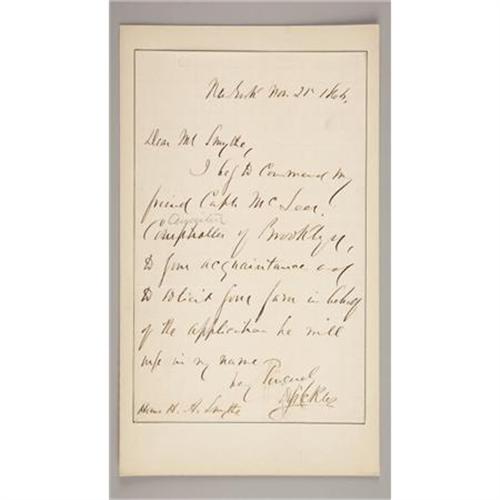 New York Nov. 21 1866.
Dear Mr Smythe,
I beg to commend my
friend Capt. Mc
Comptroller of Brooklyn,
to your acquaintance and
to solicit your favor in behalf
of the application he will
in my name
Very
Sickles
Hon. H. A. Smythe